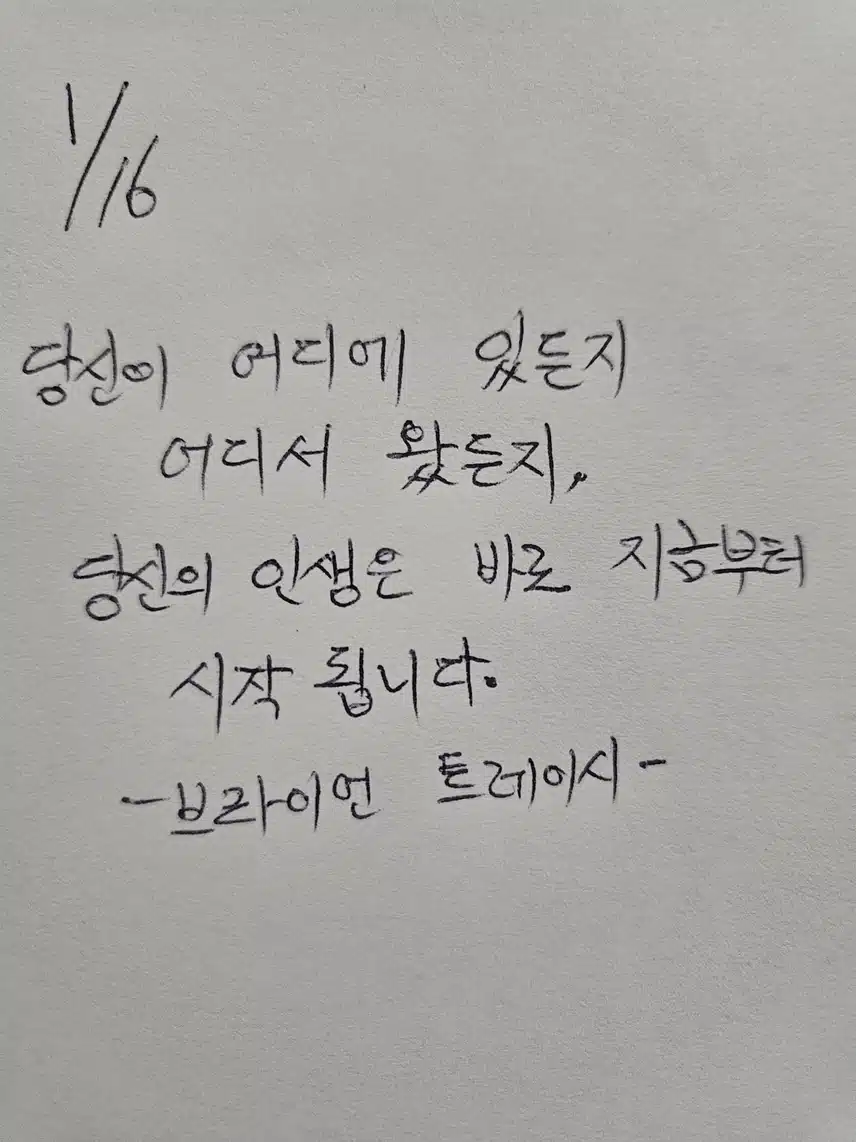 1/16
당신이 어디에 있든지
어디서 왔든지,
당신의 인생은 바로 지금부터
시작 됩니다.
-브라이언 트레이시-